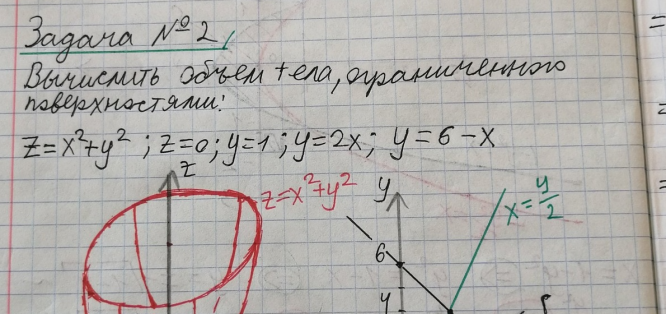 Задача № 2
Вычислить объем тела, ограниченного
поверхностями:
z=x²+y² ; z=0; y=1 ; y=2x; y=6-x
z
z=x²+y²
y
x=y/2
6
4